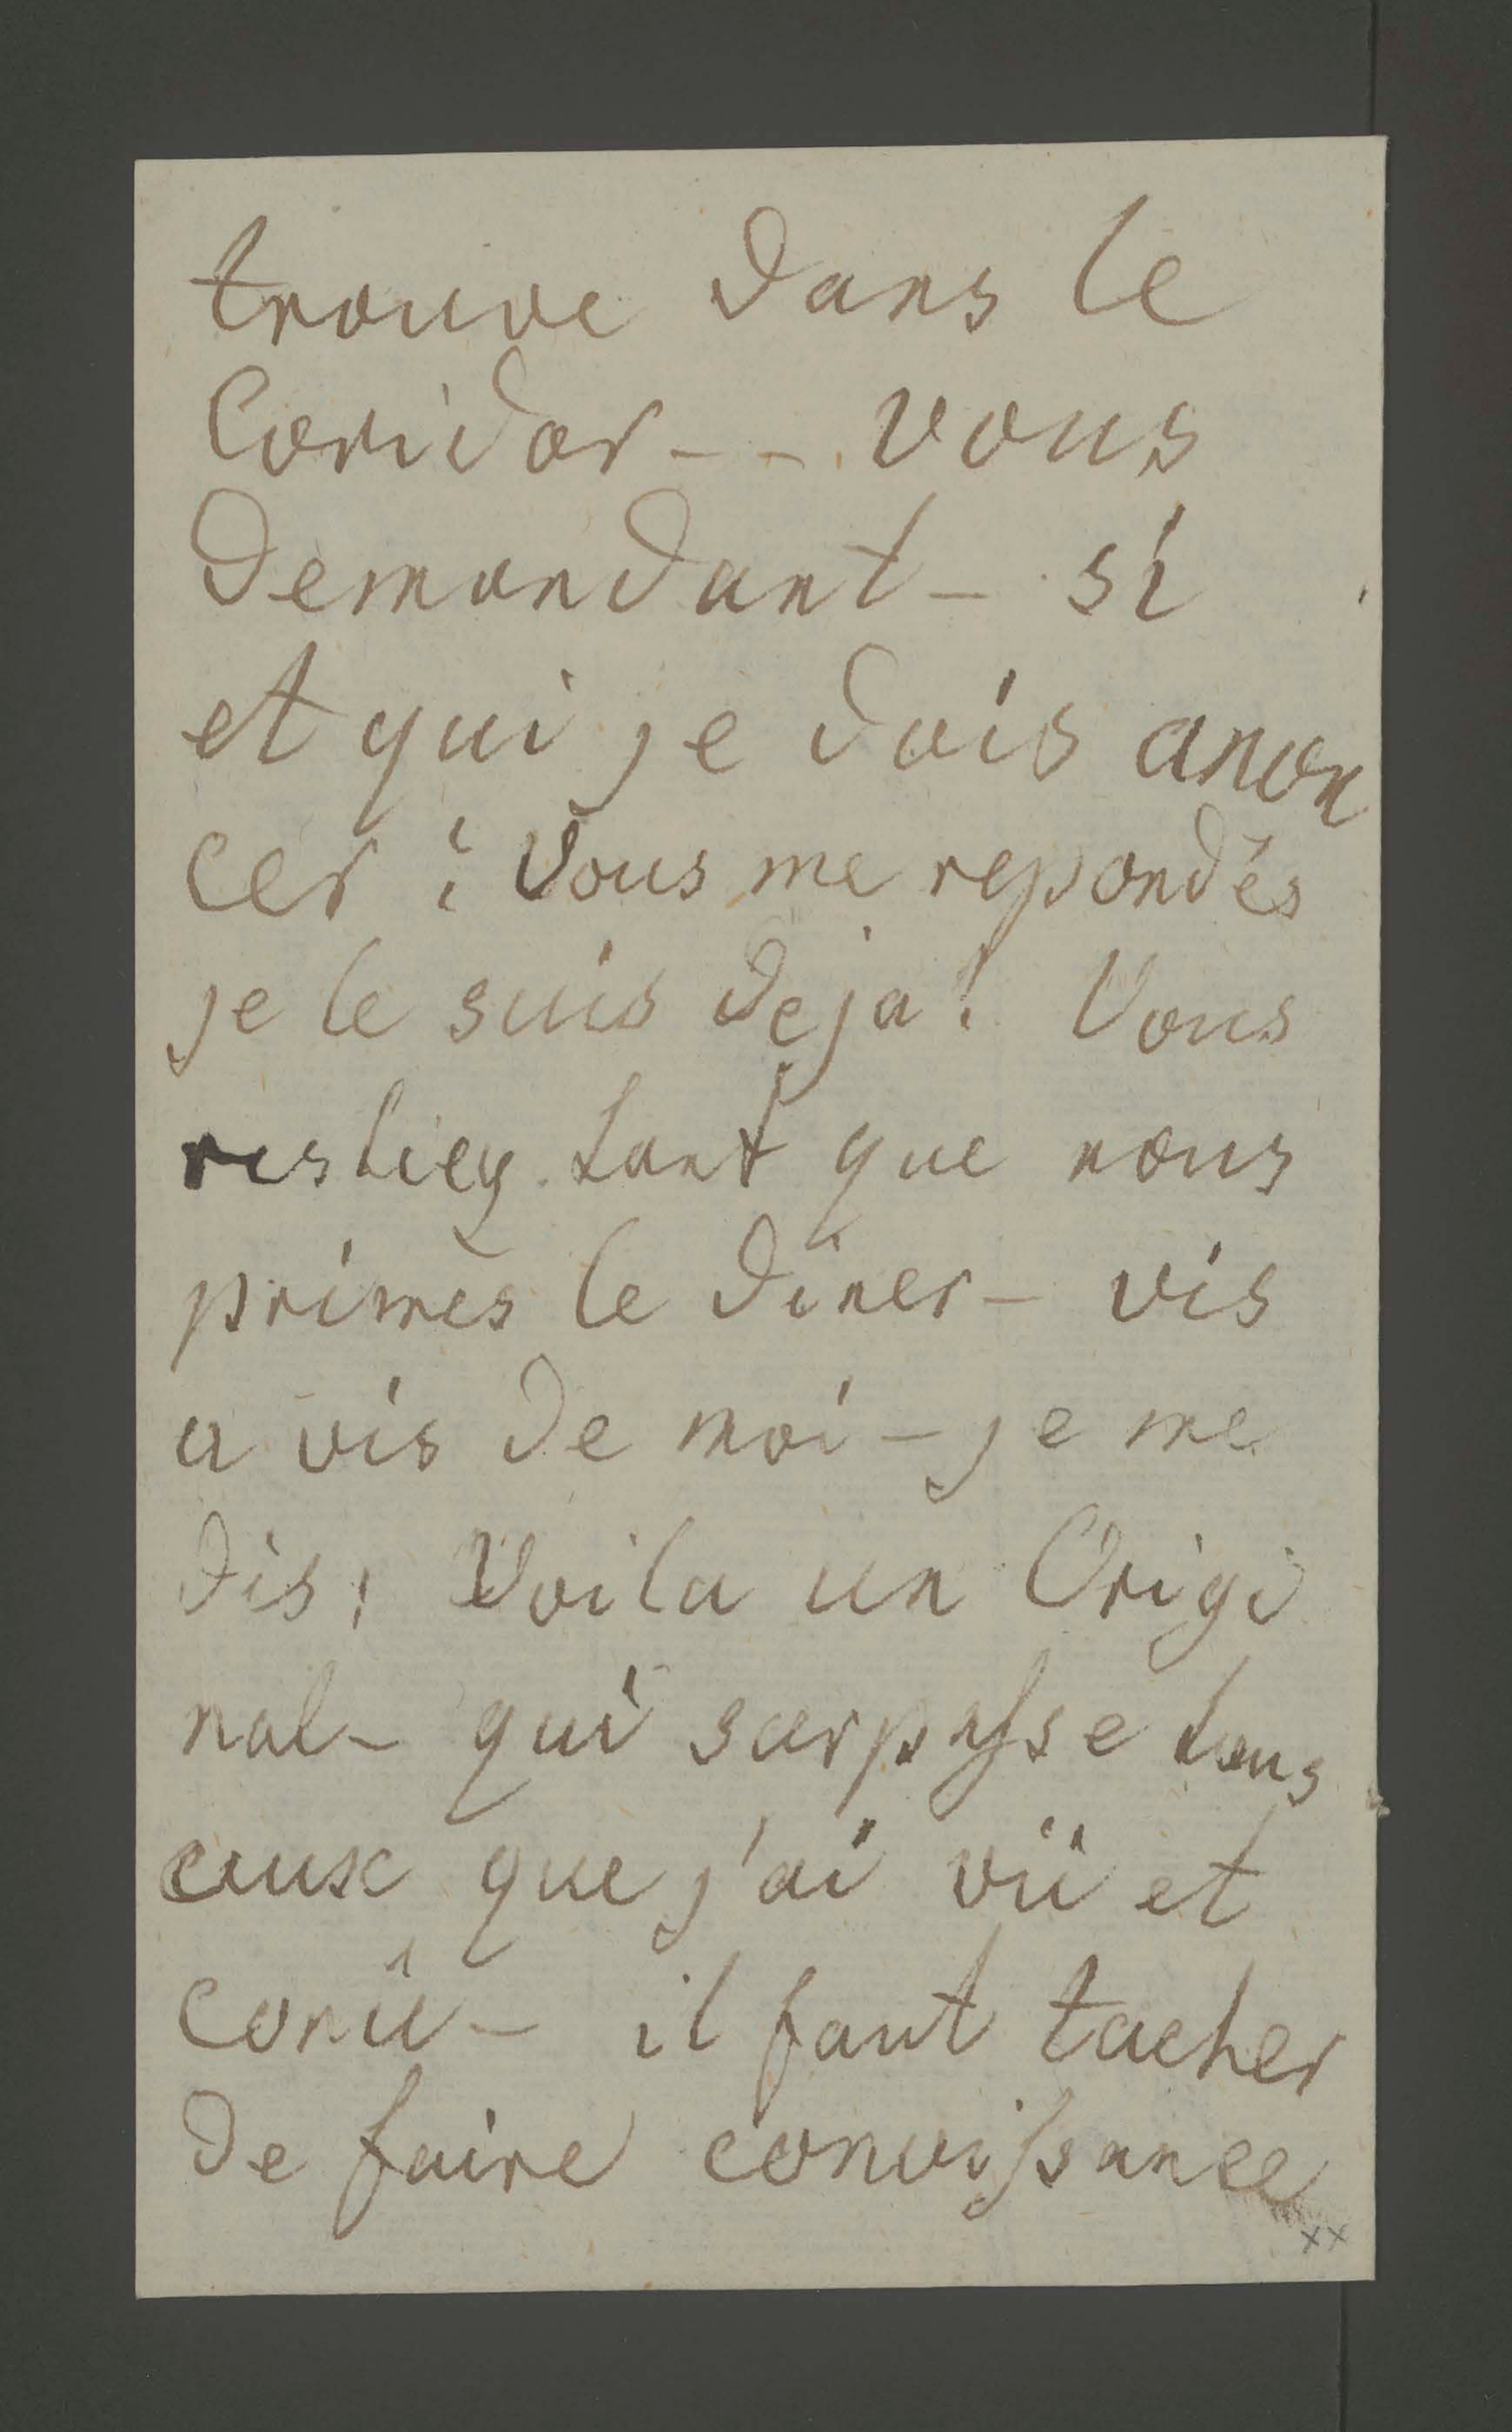 trouve dans le
Coridor -- vous
demandant - si
et qui je dois anon
cer ? Vous me repondés
je le suis deja! Vous
restiez tant que nous
primes le diner - vis
a vis de moi - je me
dis! Voila un Origi
nal - qui surpasse tous
ceux que j'ai vü et
conû - il faut tacher
de faire conoissance
xx